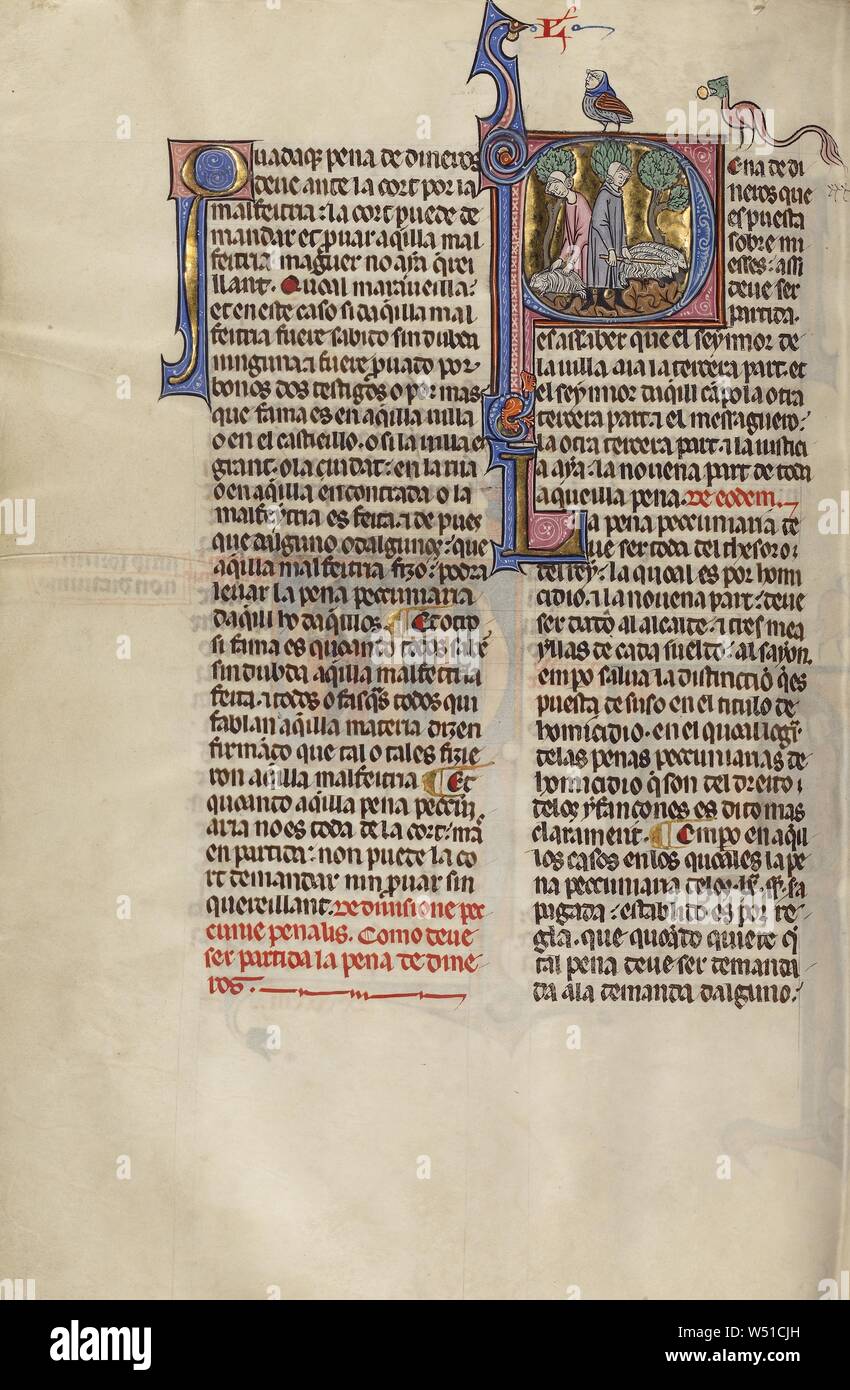 Quada q̃ pena de dineros
deue ante la cort por la
malfeitria: la cort puede de
mandar et prouar aq̃illa mal
feitria maguer no aya q̃rei
llant. Qual maraueilla:
et en este caso si daq̃illa mal
feitria fuere sabido sin dubda
ninguna ⁊ fuere prouado por
bonos dos testigos o por mas
que fama es en aq̃illa uilla
o en el castieillo. o si la uilla es
grant. o la ciudat: en la rua
o en aq̃illa encontrada o la
malfeytria es feita. ⁊ de pues
que dalguno o dalgunos: que
aq̃illa malfeitria fizo: podra
leuar la pena peccuniaria
daq̃ill ho daq̃illos. Et otro
si fama es quoanto todos saben
sin dubda aq̃illa malfeitria
feita. ⁊ todos o fascas todos qui
fablan aq̃illa materia dizen
firmãdo que tal o tales fizie
ron aq̃illa malfeitria. Et
quoanto aq̃illa pena peccuni
aria no es toda de la cort: mas
en partida: non puede la co
rt demandar nin prouar sin
quereillant. De diuisione pec
cunie penalis. Como deue
ser partida la pena de dine
ros.
L
Pena de di
neros que
es puesta
sobre mi
esses: assi
deue ser
partida.
es assaber que el seynnor de
la uilla aia la tercera part. et
el seynnor daq̃ill cãpo la otra
tercera part. ⁊ el messaguero:
la otra tercera part. ⁊ la iustici
a aya la nouena part de toda
aqueilla pena. De eodem.
La pena peccuniaria de
ue ser toda del thesoro:
del rey: la quoal es por homi
cidio. ⁊ la nouena part: deue
ser dado al alcalde. ⁊ tres mea
yllas de cada sueldo: al sayon.
empo salua la distinctiõ q̃ es
puesta de suso en el titulo de
homicidio. en el quoal logar
de las penas peccuniarias de
homicidio q̃ son del dreito:
de los yfançones es dito mas
clarament. Empo en aq̃ll
los casos en los quoales la pe
na peccuniaria
pagada: establido es por re
gla. que quoãdo quiere q̃
tal pena deue ser demanda
da a la demanda dalguno:
alamy
Image ID: W51CJH
www.alamy.com